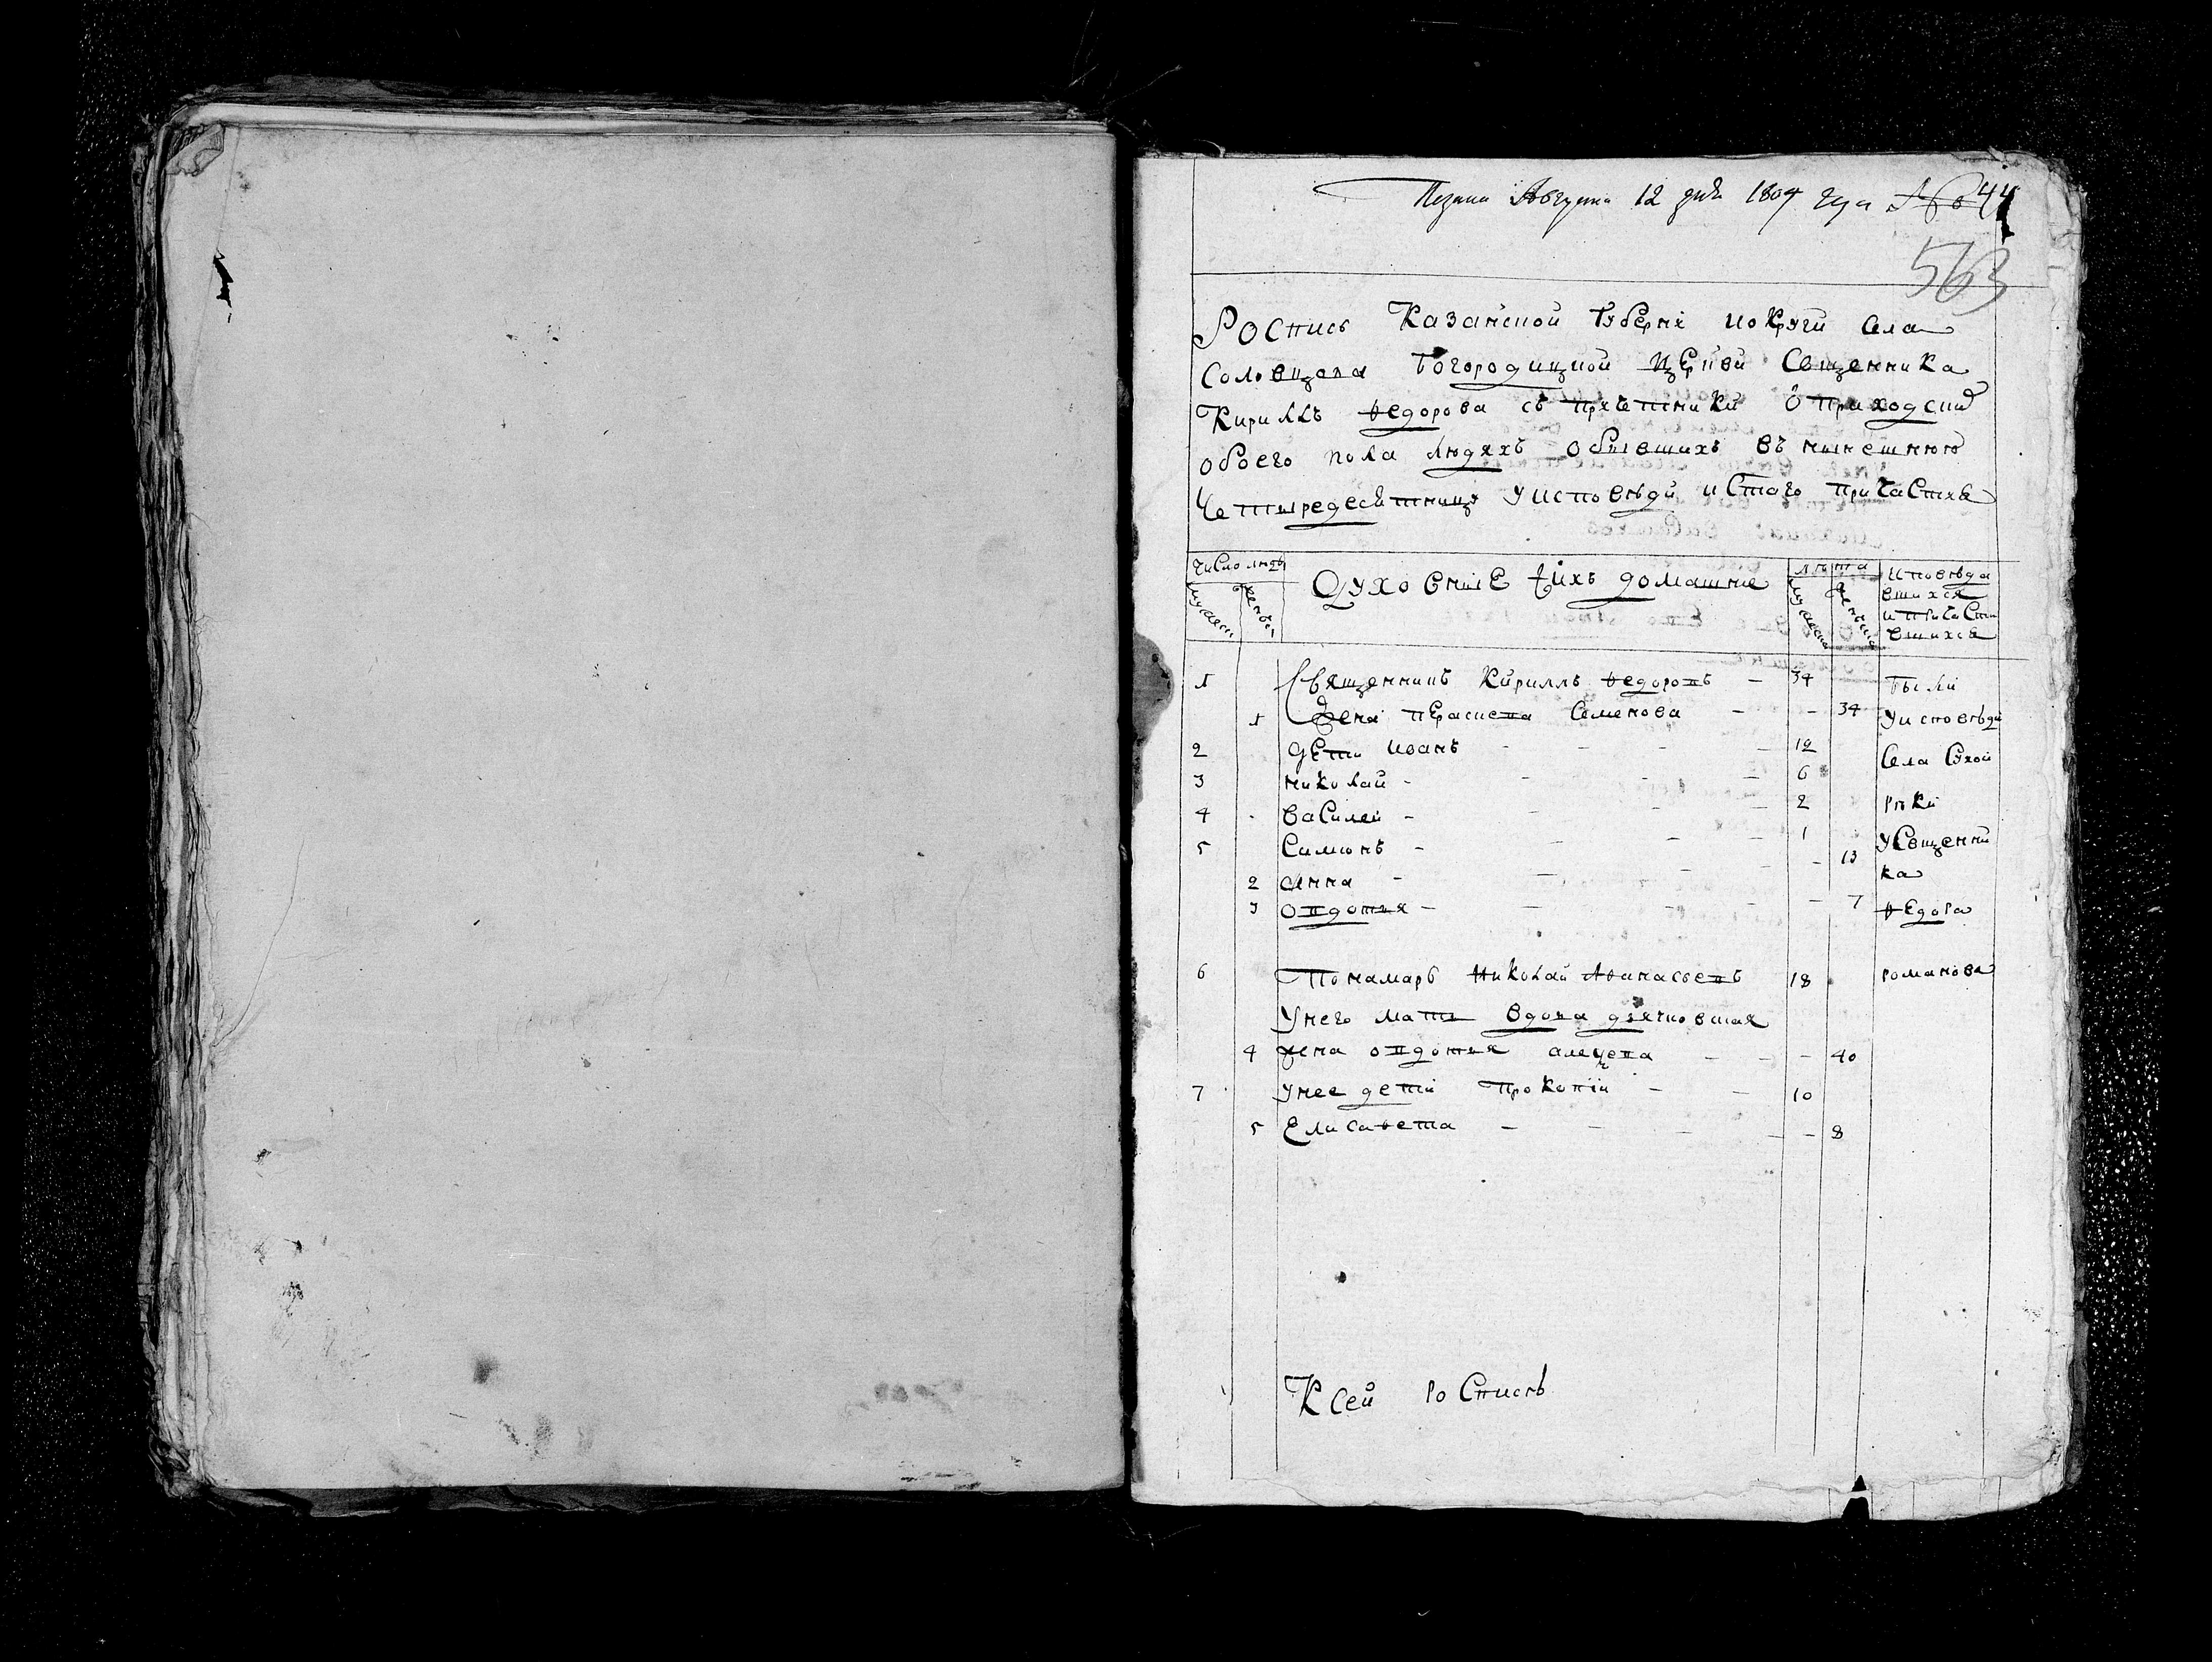 Августа 12 дня 1804 года № 44
563
Роспись Казанской губерні и округи села
Соловцова Богородицкой церкви свщенника
Кирилъ Федорова съ причетники о приходскихъ
обоего пола людяхъ обывшихъ въ нынешнюю
Четыредесятницу у исповѣди и Стаго причастия
Число людей
мужеск
женск
Духовныіе и ихъ домашние
лѣта
мужеска
женска
исповѣда
вшихся
и причаст
вшихся
1 Священникъ Кириллъ Федоровъ — 34 были
1 Жена Прасковя Семенова — 34 у исповѣди
2 дети Иванъ — 12 села Сухой
3 Николай — 6 рѣки
4 Василей — 2
5 Симионъ — 1 у свщенни
2 Анна — 13 ка
3 Овдотия — 7 Федора
6 Понамарь Николай Афанасьевъ 18 романова
У него мать вдова дьячковская
4 жена овдотия — 40
7 У нее дети Прокопій — 10
5 Елисавета — 8
К сей росписѣ